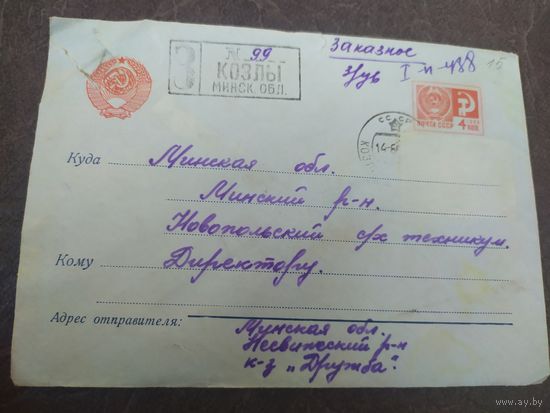 Заказное
№ 99
З КОЗЛЫ
МИНСК. ОБЛ.
15
ПОЧТА СССР 4 КОП
СССР
Куда Минская обл.
Минский р-н.
Новопольский с/х техникум.
Кому Директору.
Адрес отправителя:
Минская обл.
Несвижский р-н
к-з „Дружба".
ay.by